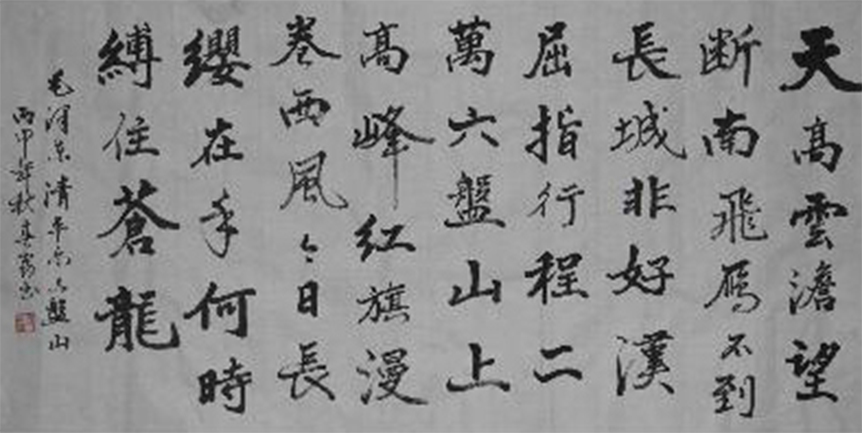 天高雲澹望
断南飛雁不到
長城非好漢
屈指行程二
萬六盤山上
高峰红旗漫
卷西風今日長
纓在手何時
縛住蒼龍
毛泽东清平乐六盤山
丙申年秋书